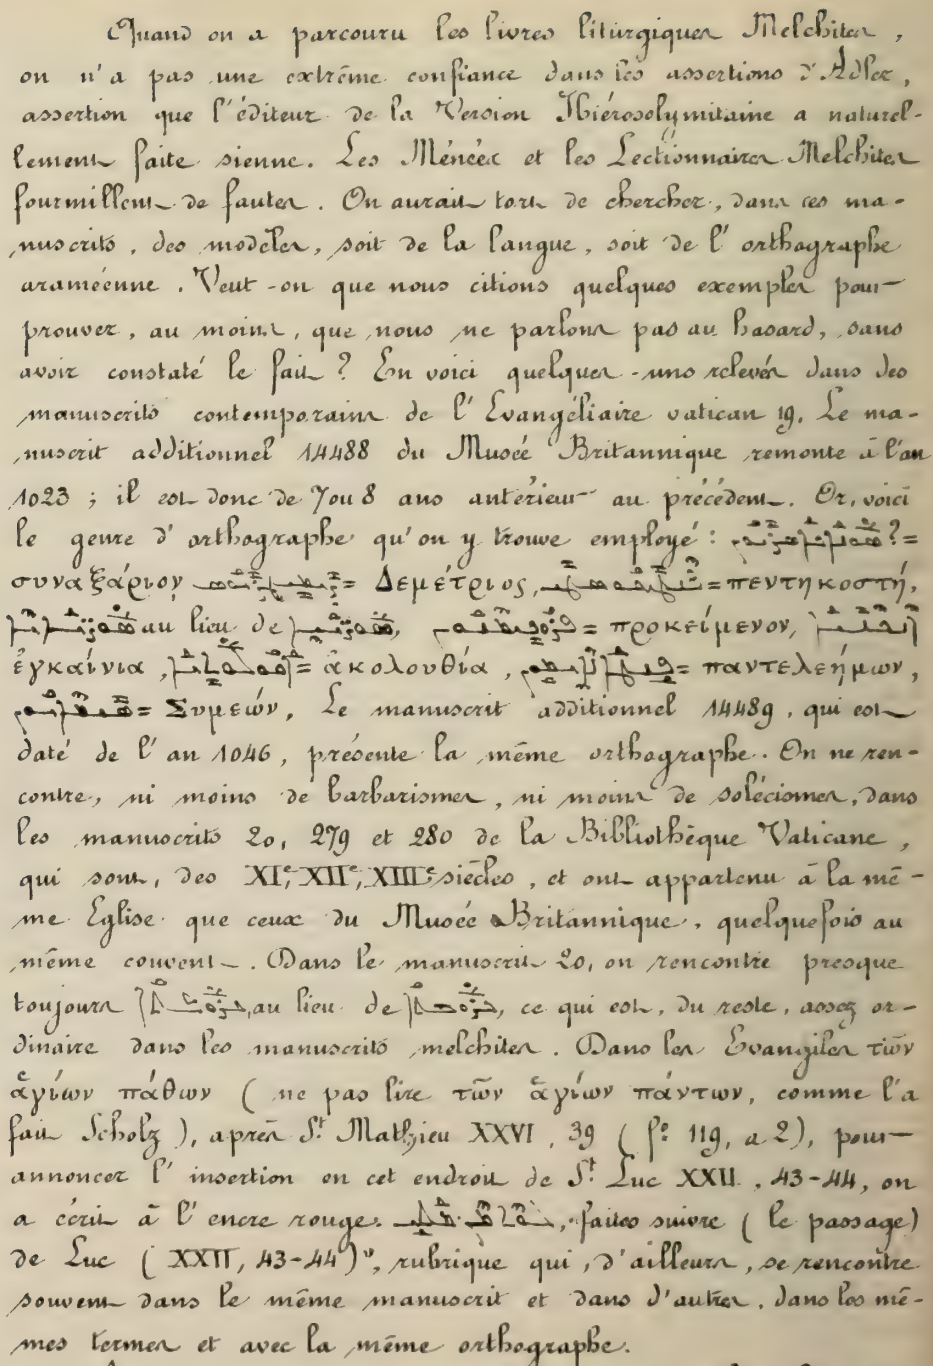 Quand on a parcouru les livres liturgiques Melchites,
on n'a pas une extrême confiance dans les assertions d'Adler,
assertion que l'éditeur de la Version Hiérosolymitaine a naturel-
lement faite sienne. Les Ménées et les Lectionnaires Melchites
fourmillent de fautes. On aurait tort de chercher, dans ces ma-
nuscrits, des modèles, soit de la langue, soit de l'orthographe
araméenne. Veut-on que nous citions quelques exemples pour
prouver, au moins, que nous ne parlons pas au hasard, sans
avoir constaté le fait? En voici quelques-uns relevés dans des
manuscrits contemporains de l'Evangéliaire vatican 19. Le ma-
nuscrit additionnel 14488 du Musée Britannique remonte à l'an
1023; il est donc de 7 ou 8 ans antérieur au précédent. Or, voici
le genre d'orthographe qu'on y trouve employé: ?=
συναξάριον = Δεμέτριος, = πεντηκοστή,
au lieu de , = προκείμενον,
ἐγκαίνια, = ἀκολουθία, = παντελεήμων,
= Συμεών, Le manuscrit additionnel 14489, qui est
daté de l'an 1046, présente la même orthographe. On ne ren-
contre, ni moins de barbarismes, ni moins de solécismes, dans
les manuscrits 20, 279 et 280 de la Bibliothèque Vaticane,
qui sont, des XIe, XIIe, XIIIe siècles, et ont appartenu à la mê-
me Eglise que ceux du Musée Britannique, quelquefois au
même couvent. Dans le manuscrit 20, on rencontre presque
toujours au lieu de , ce qui est, du reste, assez or-
dinaire dans les manuscrits melchites. Dans les Evangiles τῶν
ἁγίων πάθων (ne pas lire τῶν ἁγίων πάντων, comme l'a
fait Scholz), après St Mathieu XXVI, 39 (fo 119, a 2), pour
annoncer l'insertion en cet endroit de St Luc XXII, 43-44, on
a écrit à l'encre rouge: , "faites suivre (le passage)
de Luc (XXII, 43-44)", rubrique qui, d'ailleurs, se rencontre
souvent dans le même manuscrit et dans d'autres, dans les mê-
mes termes et avec la même orthographe.